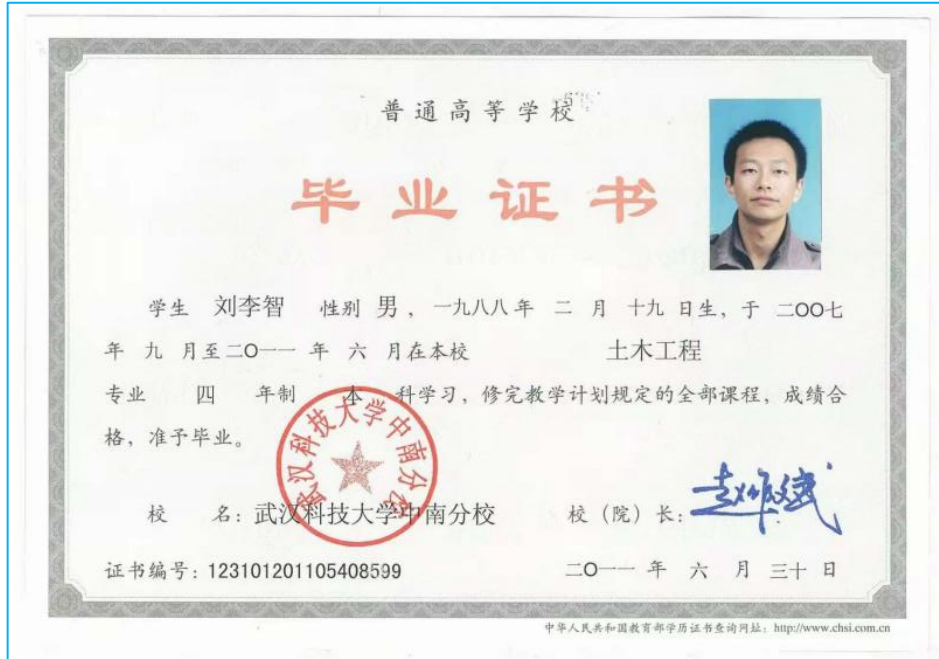 普通高等学校
毕业证书
学生 刘李智 性别 男，一九八八年 二 月 十九 日生，于 二OO七
年 九 月至二O一一 年 六 月在本校 土木工程
专业 四 年制 本 科学习，修完教学计划规定的全部课程，成绩合
格，准予毕业。
武汉科技大学中南分校
校 名：武汉科技大学中南分校 校（院）长：赵作斌
证书编号：123101201105408599 二O一一 年 六 月 三十 日
中华人民共和国教育部学历证书查询网址：http://www.chsi.com.cn